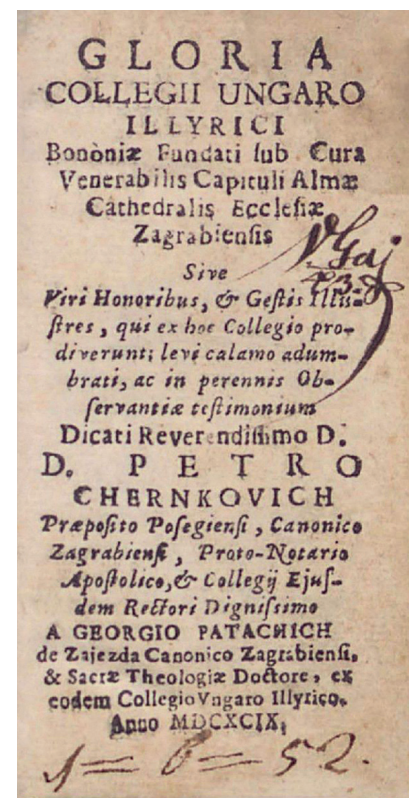 GLORIA
COLLEGII UNGARO
ILLYRICI
Bonòniæ Fundati sub Cura
Venerabilis Capituli Almæ
Cathedralis Ecclesiæ
Zagrabiensis
Sive
Viri Honoribus, & Gestis Illu-
stres, qui ex hoc Collegio pro-
diverunt; levi calamo adum-
brati, ac in perennis Ob-
servantiæ testimonium
Dicati Reverendissimo D.
D. PETRO
CHERNKOVICH
Præposito Posegiensi, Canonico
Zagrabiensi, Proto-Notario
Apostolico, & Collegij Ejus-
dem Rectori Dignissimo
A GEORGIO PATACHICH
de Zajezda Canonico Zagrabiensi,
& Sacræ Theologiæ Doctore, ex
eodem Collegio Vngaro Illyrico.
Anno MDCXCIX.
1= 6= 52.